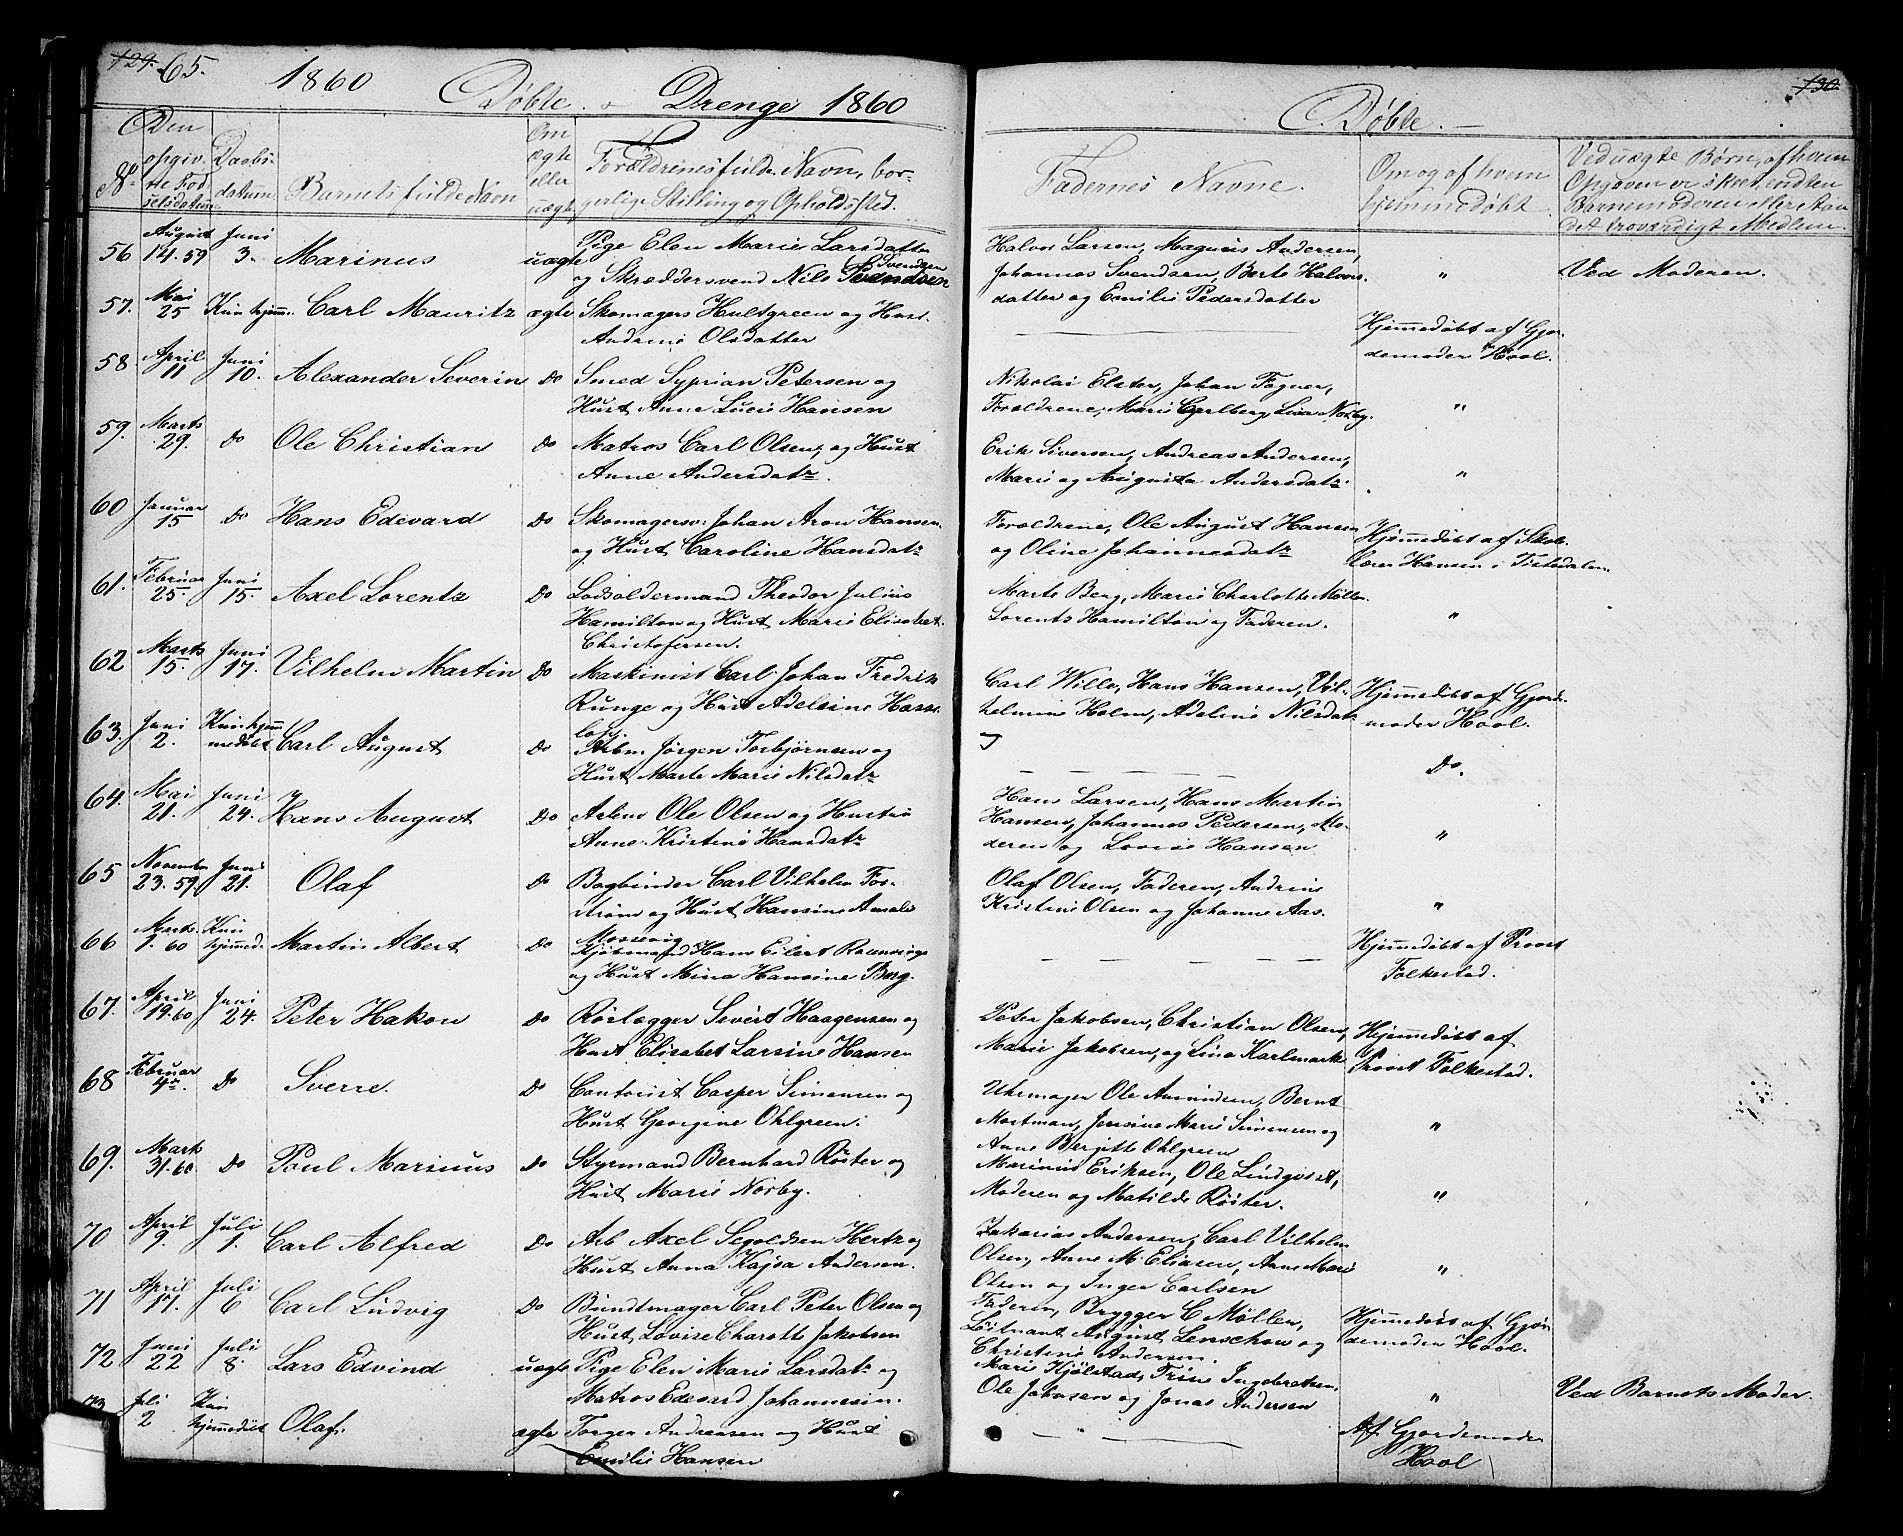 129. 65.
1860 Døbte. - Drenge 1860
No
Den opgiv-
ne Fød-
selsdatum
Daabs-
datum
Barnets fulde Navn
Om
ægte
eller
uægte
Forældrenes fulde Navn, bor-
gerlige Stilling og Opholdssted.
56 August 14. 59 Juni 3. Marinus uægte Pige Elen Marie Larsdatter
og Skræddersvend Nils Svendsen
57. Mai 25 Kun hjemm. Carl Mauritz ægte Skomagers Hultgreen og Hust.
Andrine Olsdatter
58 April 11 Juni 10. Alexander Severin Do Smed Syprian Petersen og
Hust. Anne Lucie Hansen
59. Marts 29. Do Ole Christian Do Matros Carl Olsen, og Hust
Anne Andersdatr.
60 Januar 15 Do Hans Edevard Do Skomagersv: Johan Aron Hansen
og Hust Caroline Hansdatr
61. Februar 25. Juni 15. Axel Lorentz Do Lodsoldermand Theodor Julius
Hamilton og Hust Marie Elisabet
Christofersen.
62 Marts 15. Juni 17. Vilhelm Martin Do Maskinist Carl Johan Fredrik
Runge og Hust Adelsine
63. Juni 2. Kun hjem
medøbt Carl August Do Arbm. Jørgen Torbjørnsen og
Hust Marte Marie Nilsdatr
64. Mai 21. Juni 24. Hans August Do Arbm Ole Olsen og Hustru
Anne Kristine Hansdatr
65 November 23. 59. Juni 21. Olaf Do Bogbinder Carl Vilhelm Fos-
strøm og Hust Hansine Amalie
Mossevig
66 Marts 1. 60 Kun
hjemmed. Martin Albert Do Kjøbmand Hans Eilert Rosenvinge
og Hust Mina Hansine Berg.
67. April 19. 60 Juni 24. Peter Hakon Do Rørlægger Sivert Haagensen og
Hust Elisabet Larsine Hansen
68 Februar 4de. Do Sverre. Do Contorist Casper Simensen og
Hust Georgine Ohlgreen.
69. Marts 31. 60. Do Poul Marinus Do Styrmand Bernhard Röster og
Hust Marie Norby.
70 April 9. Juli 1. Carl Alfred Do Arb Axel Hertz og
Hust Anna Kajsa Andersen.
71 April 17. Juli 6 Carl Ludvig Do Bundtmager Carl Peter Olsen og
Hust Lovise Charott Jakobsen
72 Juni 22 Juli 8. Lars Edvind uægte Pige Elen Marie Larsdatr og
Matros Edevard Johannesen.
73 Juli 2 Kun
hjemmedøbt Olaf. ægte Torger Andreasen og Hust
Emilie Hansen
130.
Døbte. -
Faderness Navne.
Om og af hvem
hjemmedøbt.
Ved uægte Børn, af hvem
Opgaven er skeet, enten
Barnemoderen eller et an
det troværdigt Medlem.
Halvor Larsen, Magnus Andersen,
Johannes Svendsen, Berte Halvors " Ved Moderen.
datter og Emilie Pedersdatter
Hjemmedøbt af Gjor-
demoder Hool.
Nikolai Elster, Johan Fagner,
Forældrene, Marie Carlberg, Lina Norby. "
Erik Siversen, Andreas Andersen,
Marie og Augusta Andersdatr. "
Forældrene, Ole August Hansen
og Oline Johannesdatr
Hjemmedøbt af Skol-
lærer Hansen i Tistedalen.
Marte Berg, Marie Charlotte Møller
Lorents Hamilton og Faderen. "
Carl Wille, Hans Hansen, Vil-
helmine Holm, Adeline Nilsdatr
og
Hjemmedøbt af Gjord-
moder Hool.
Do.
Hans Larsen, Hans Martin
Hansen, Johannes Pedersen, Mo-
deren og Lovise Hansen "
Olaf Olsen, Faderen, Andrine
Kristine Olsen og Johanne Aas. "
Hjemmedøbt af Provst
Folkestad.
Peter Jakobsen, Christian Olsen,
Marie Jakobsen, og Lina Karlmark
Hjemmedøbt af
Provst Folkestad.
Uhrmager Ole Amundsen, Bernt
Mortman, Jensine Marie Simensen og
Anne Bergitte Ohlgreen "
Marinius Eriksen, Ole Lindqvist,
Moderen og Matilde Röster. "
Zakarias Andersen, Carl Vilhelm
Olsen, Anne M. Eliasen, Anne Marie
Olsen og Inger Carlsen "
Faderen, Brygger C Møller,
Løitnant August Lenschow og
Christine Andersen.
Hjemmedøbt af Gjor
demoder Hool.
Marie Kjølstad, Trine Ingebretsen,
Ole Jakobsen og Jonas Andersen " Ved Barnets Moder
Af Gjordemoder
Hool